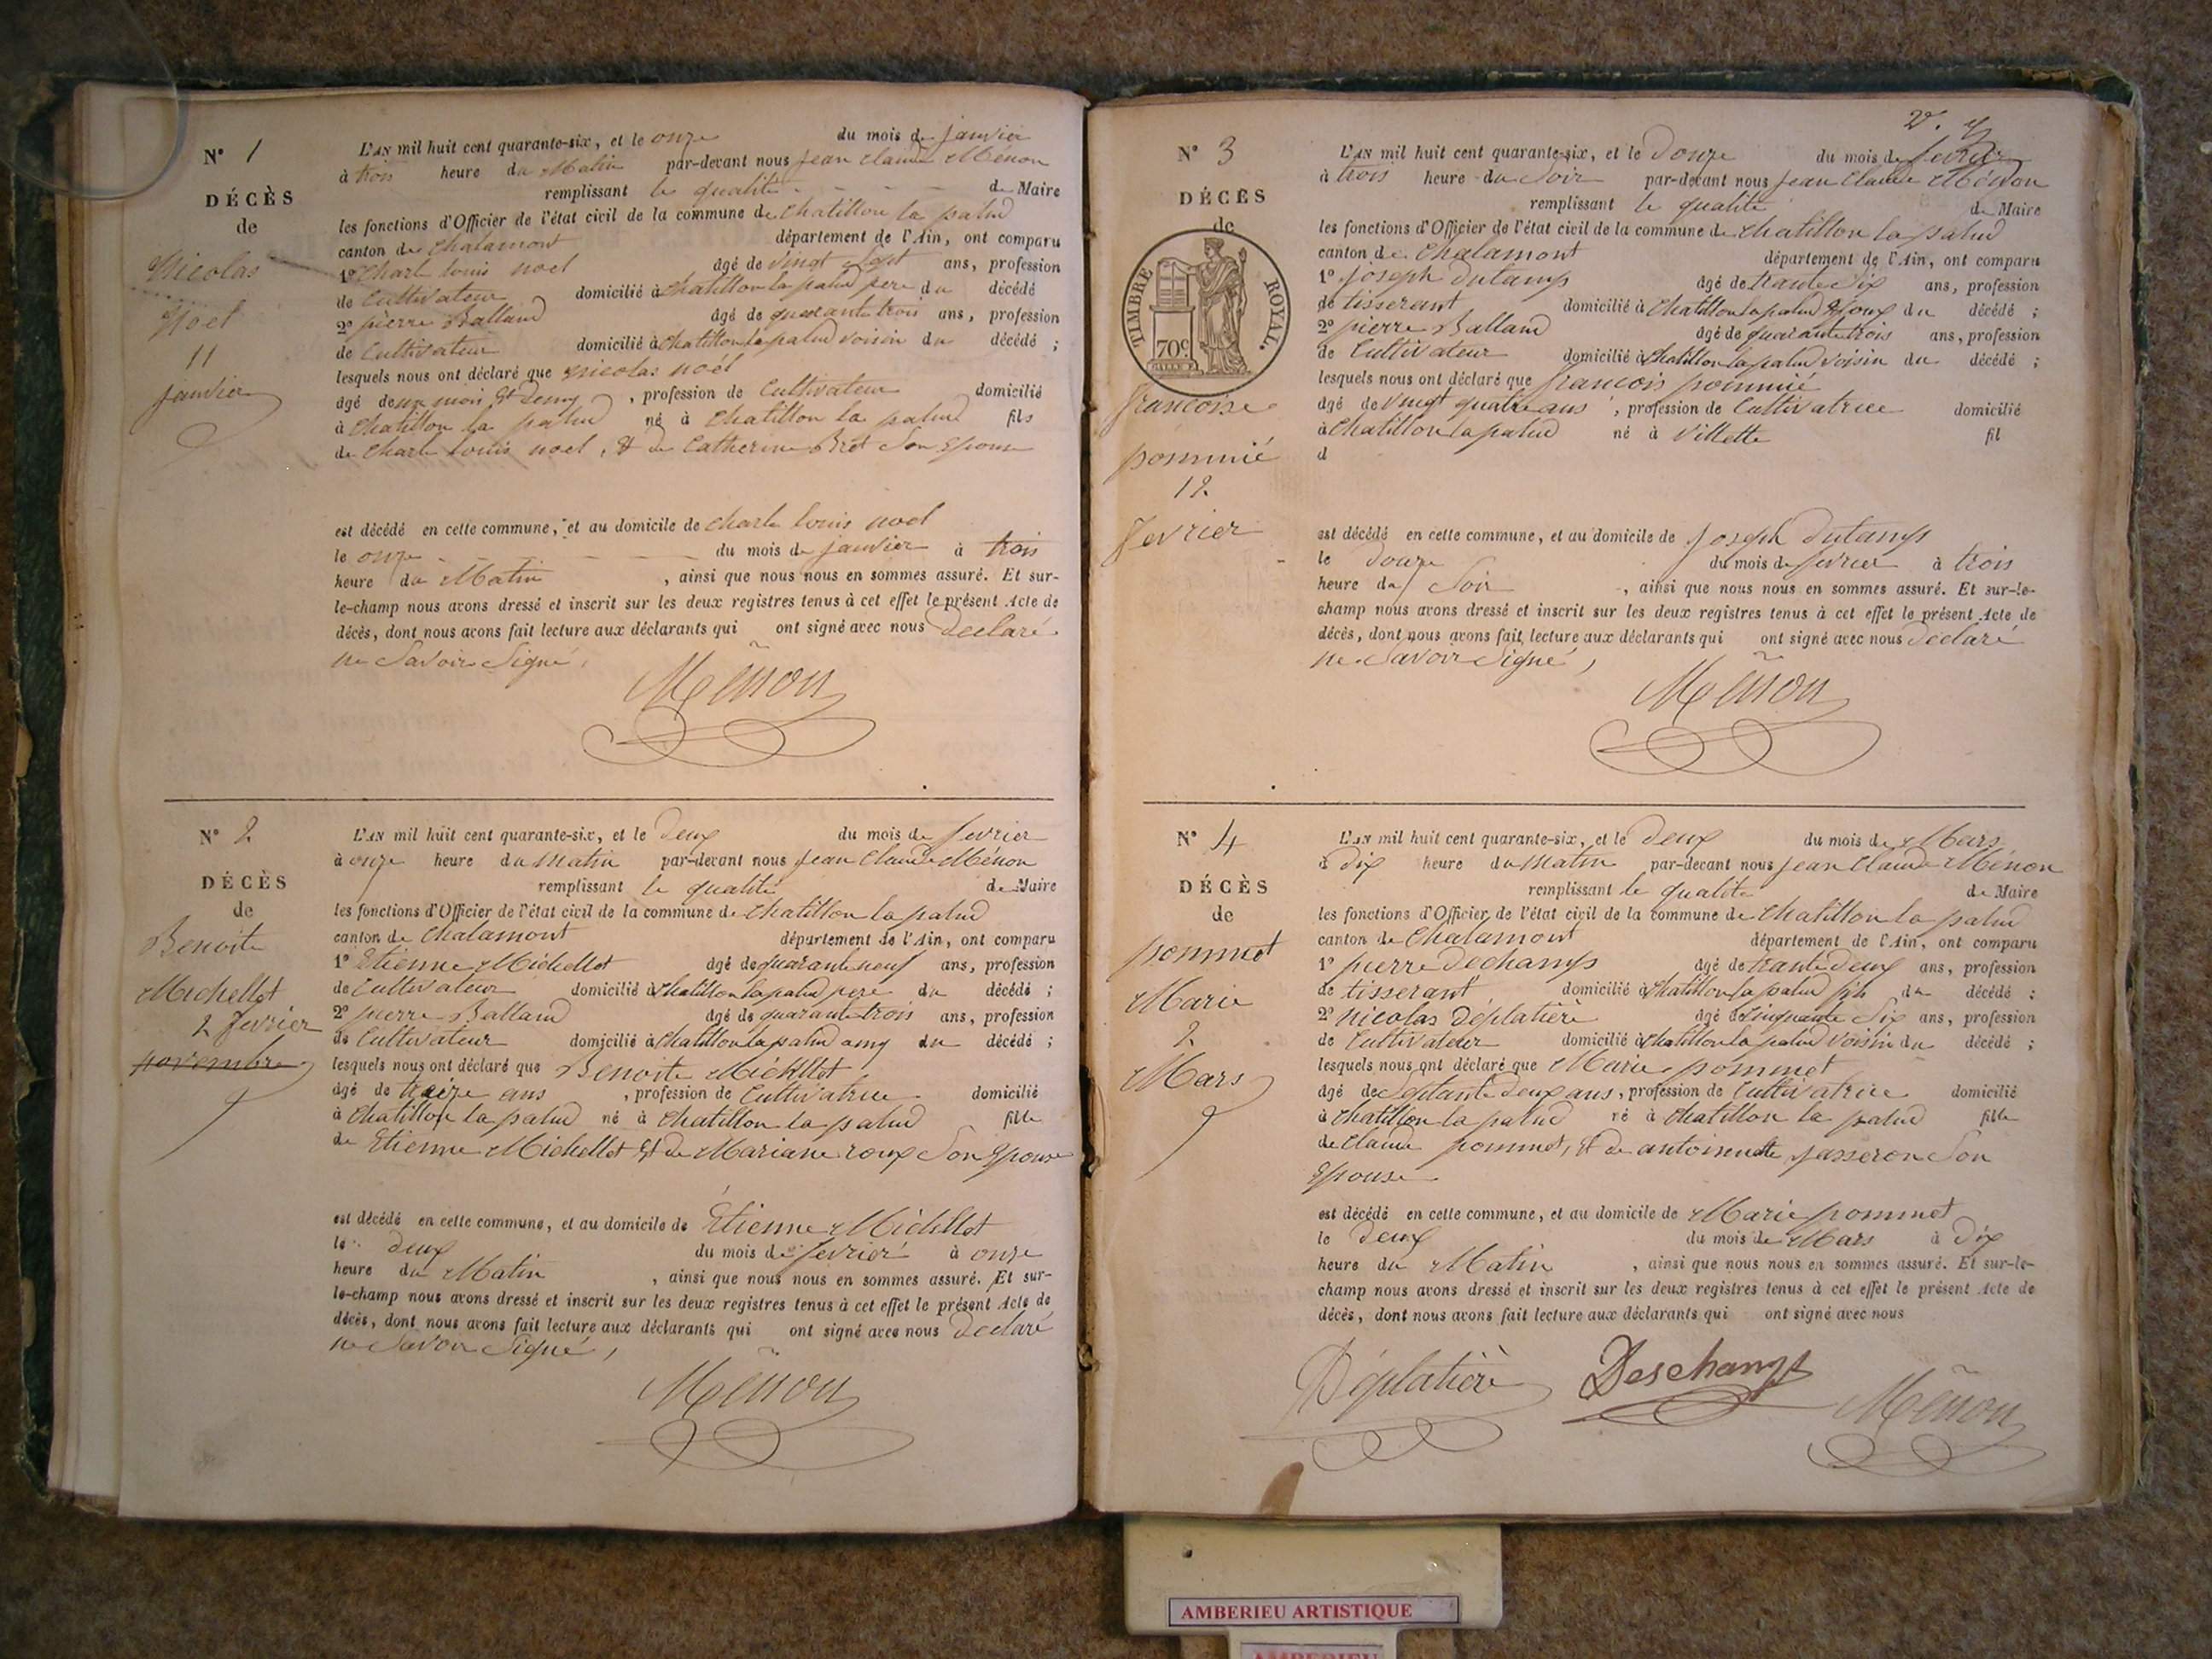 N° 1
DÉCÈS
de
Nicolas
Noel
11
janvier
L'AN mil huit cent quarante-six, et le onze du mois de janvier
à trois heure du Matin par-devant nous jean claude Ménon
remplissant le qualité de Maire
les fonctions d'Officier de l'état civil de la commune de chatillon la palud
canton de chalamont département de l'Ain, ont comparu
1° charle louis noel âgé de vingt sept ans, profession
de Cultivateur domicilié à chatillon la palud pere du décédé
2° pierre Balland âgé de quarante trois ans, profession
de Cultivateur domicilié à chatillon la palud voisin du décédé ;
lesquels nous ont déclaré que nicolas noél
âgé de un mois Et Demy , profession de Cultivateur domicilié
à Chatillon la palud né à Chatillon la palud fils
de charle louis noel, & de Catherine Brét Son Epouse
est décédé en cette commune, et au domicile de charle louis noel
le onze du mois de janvier à trois
heure du Matin , ainsi que nous nous en sommes assuré. Et sur-
le-champ nous avons dressé et inscrit sur les deux registres tenus à cet effet le présent Acte de
décès, dont nous avons fait lecture aux déclarants qui ont signé avec nous Declaré
ne Savoir Signé,
Ménon
N° 2
DÉCÈS
de
Benoite
Michellet
2 fevrier
novembre
L'AN mil huit cent quarante-six, et le Deux du mois de fevrier
à onze heure du Matin par-devant nous jean Claude Ménon
remplissant le qualité de Maire
les fonctions d'Officier de l'état civil de la commune de chatillon la palud
canton de chalamont département de l'Ain, ont comparu
1° Etienne Michellet âgé de quarante neuf ans, profession
de Cultivateur domicilié à chatillon la palud pere du décédé ;
2° pierre Balland âgé de quarante trois ans, profession
de Cultivateur domicilié à chatillon la palud amy du décédé ;
lesquels nous ont déclaré que Benoite Michellet
âgé de treize ans , profession de Cultivatrice domicilié
à chatillon la palud né à chatillon la palud fille
de Etienne Michellet Et de Mariane roux Son Epouse
est décédé en cette commune, et au domicile de Etienne Michellet
le deux du mois de fevrier à onze
heure du Matin , ainsi que nous nous en sommes assuré. Et sur-
le-champ nous avons dressé et inscrit sur les deux registres tenus à cet effet le présent Acte de
décès, dont nous avons fait lecture aux déclarants qui ont signé avec nous Declaré
ne Savoir Signé,
Ménon
N° 3
DÉCÈS
de
TIMBRE ROYAL.
70c.
francoise
pommié
12
fevrier
L'AN mil huit cent quarante-six, et le Douze du mois de fevrier
à trois heure du Soir par-devant nous jean Claude Ménon
remplissant le qualité de Maire
les fonctions d'Officier de l'état civil de la commune de chatillon la palud
canton de chalamont département de l'Ain, ont comparu
1° joseph Dutamps âgé de trante Six ans, profession
de tisserant domicilié à chatillon la palud Epoux du décédé ;
2° pierre Balland âgé de quarante trois ans, profession
de Cultivateur domicilié à chatillon la palud voisin du décédé ;
lesquels nous ont déclaré que francois pommié
âgé de vingt quatre ans , profession de Cultivatrice domicilié
à chatillon la palud né à Villette fil
d
est décédé en cette commune, et au domicile de joseph Dutamps
le Douze du mois de fevrier à trois
heure du Soir , ainsi que nous nous en sommes assuré. Et sur-le-
champ nous avons dressé et inscrit sur les deux registres tenus à cet effet le présent Acte de
décès, dont nous avons fait lecture aux déclarants qui ont signé avec nous Déclaré
ne Savoir Signé,
Ménon
N° 4
DÉCÈS
de
pommet
Marie
2
Mars
L'AN mil huit cent quarante-six, et le Deux du mois de Mars
à Dix heure du Matin par-devant nous jean Claude Ménon
remplissant le qualité de Maire
les fonctions d'Officier de l'état civil de la commune de chatillon la palud
canton de chalamont département de l'Ain, ont comparu
1° pierre Dechamps âgé de trante Deux ans, profession
de tisserant domicilié à chatillon la palud fils du décédé ;
2° nicolas Déplatière âgé de Cinquante Six ans, profession
de Cultivateur domicilié à chatillon la palud voisin du décédé ;
lesquels nous ont déclaré que Marie pommet
âgé de Septante Deux ans, profession de Cultivatrice domicilié
à chatillon la palud né à chatillon la palud fille
de claude pommet, & de antoinette passeron Son
Epouse
est décédé en cette commune, et au domicile de Marie pommet
le Deux du mois de Mars à Dix
heure du Matin , ainsi que nous nous en sommes assuré. Et sur-le-
champ nous avons dressé et inscrit sur les deux registres tenus à cet effet le présent Acte de
décès, dont nous avons fait lecture aux déclarants qui ont signé avec nous
Déplatière Deschamps Ménon
AMBERIEU ARTISTIQUE
AMBERIEU